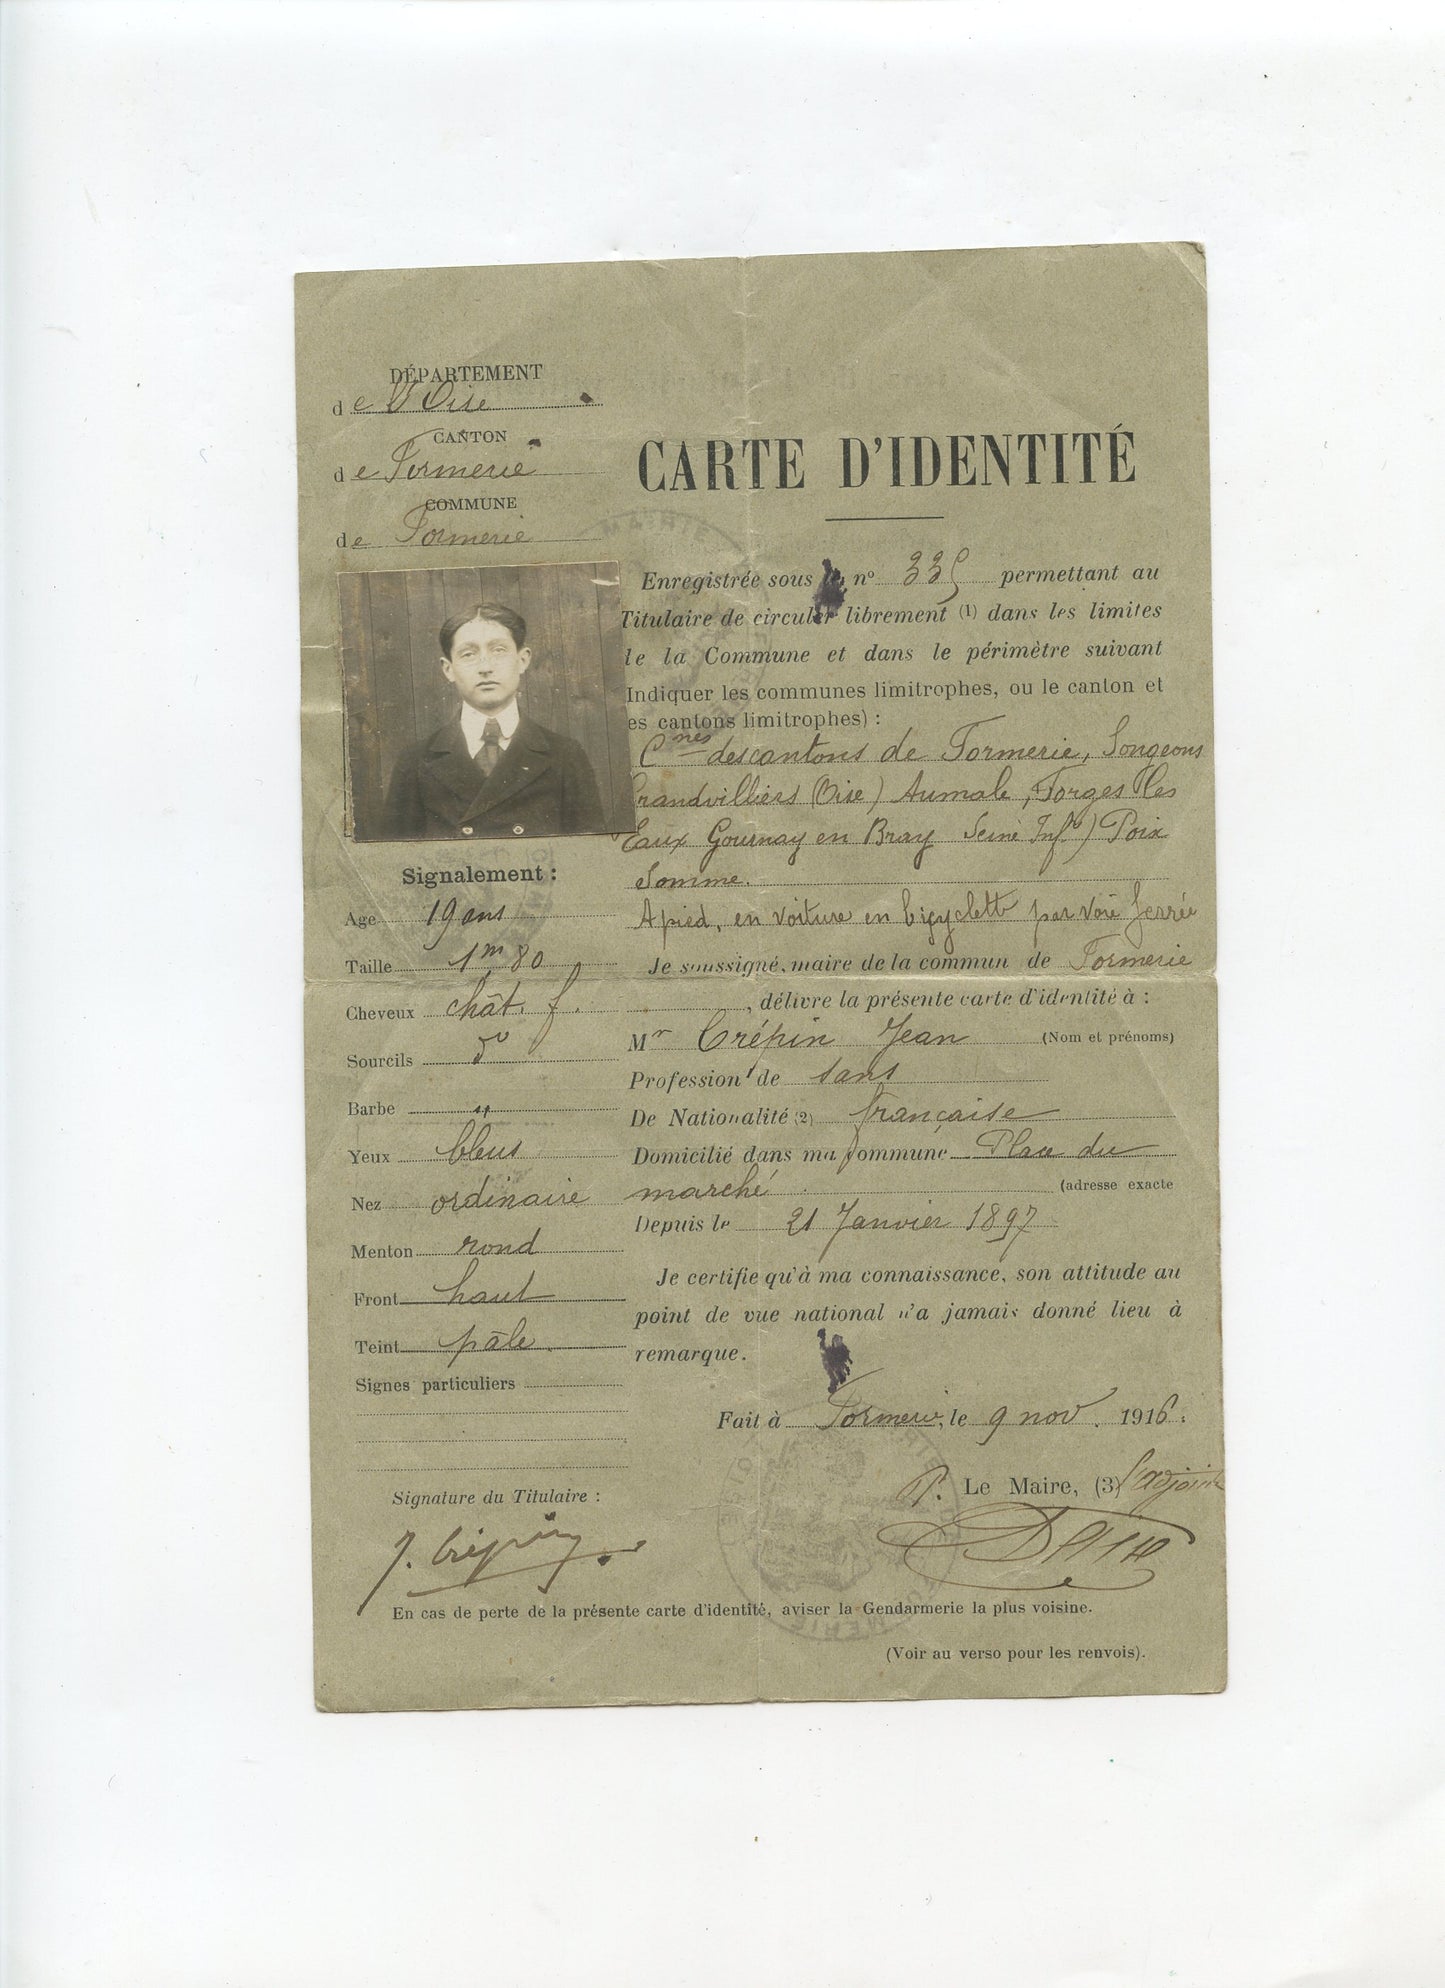 DÉPARTEMENT
de l'Oise
CANTON
de Formerie
COMMUNE
de Formerie
CARTE D'IDENTITÉ
MAIRIE
Enregistrée sous le nº 335 permettant au
Titulaire de circuler librement (1) dans les limites
de la Commune et dans le périmètre suivant
Indiquer les communes limitrophes, ou le canton et
es cantons limitrophes) :
Cnes des cantons de Formerie, Songeons
Grandvilliers (Oise) Aumale, Forges les
Eaux Gournay en Bray Seine Infre) Poix
Somme.
A pied, en voiture en bicyclette par voie ferrée
Je soussigné, maire de la commun de Formerie
, délivre la présente carte d'identité à :
Mr Crépin Jean (Nom et prénoms)
Profession de sans
De Nationalité (2) française
Domicilié dans ma commune Place du
marché (adresse exacte
Depuis le 21 Janvier 1897
Je certifie qu'à ma connaissance, son attitude au
point de vue national n'a jamais donné lieu à
remarque.
Fait à Formerie, le 9 nov. 1916.
P. Le Maire, (3) l'adjoint
Signalement :
Age 19 ans
Taille 1m80
Cheveux chât. f.
Sourcils do
Barbe "
Yeux bleus
Nez ordinaire
Menton rond
Front haut
Teint pâle.
Signes particuliers
Signature du Titulaire :
J. Crépin
En cas de perte de la présente carte d'identité, aviser la Gendarmerie la plus voisine.
(Voir au verso pour les renvois).